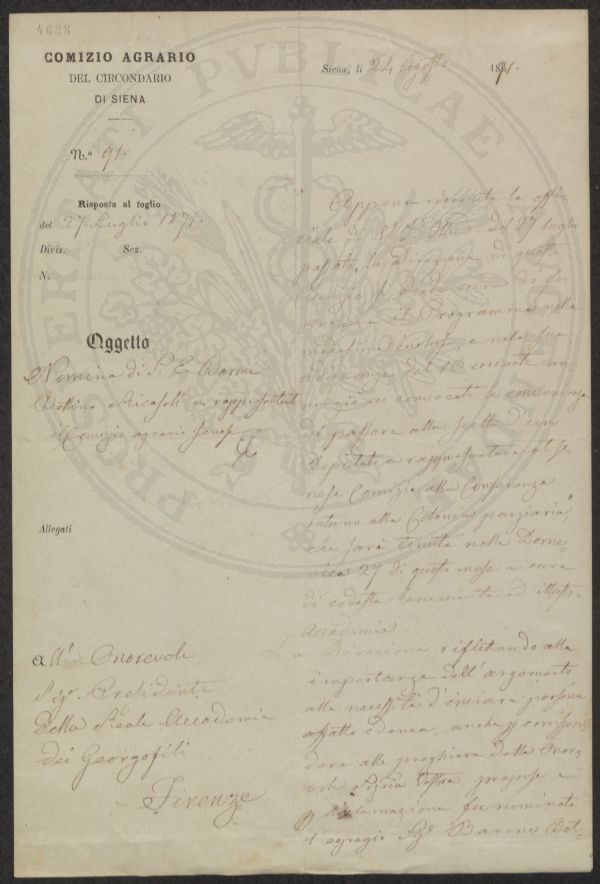 4688
COMIZIO AGRARIO
DEL CIRCONDARIO
DI SIENA
N.° 91
Risposta al foglio
del 27 Luglio 1871.
Divis. Sez.
N.
Oggetto
Nomina di S. E. Barone
Bettino Ricasoli a rappresentante
il Comizio agrario Senese
Allegati
All' Onorevole
Sig. Presidente
della Reale Accademia
dei Georgofili
Firenze
Siena, li 24 Agosto 1871.
Appena ricevuta la offi
ciale di del 27 Luglio
passato, la Direzione di questo
Comizio si diede cura di
il Programma nella
e nella sua
adunanza del corrente
la convenienza
di passare alla scelta d'un
Deputato a rappresentare il Se
nese Comizio alla Conferenza
intorno alla Colonia parziaria,
che sarà tenuta nella Dome
nica 27 di questo mese a cura
di codesta benemerita ed illustre
Accademia
La Direzione riflettendo alla
importanza dell'argomento
alla necessità d'inviare persona
affatto idonea, anche p corrispon
dere alla preghiera della Onore
vole Signia Vostra propose e
p acclamazione fu nominato
l'egregio Sig. Barone Bet-
PROSPERITATI PVBLICAE